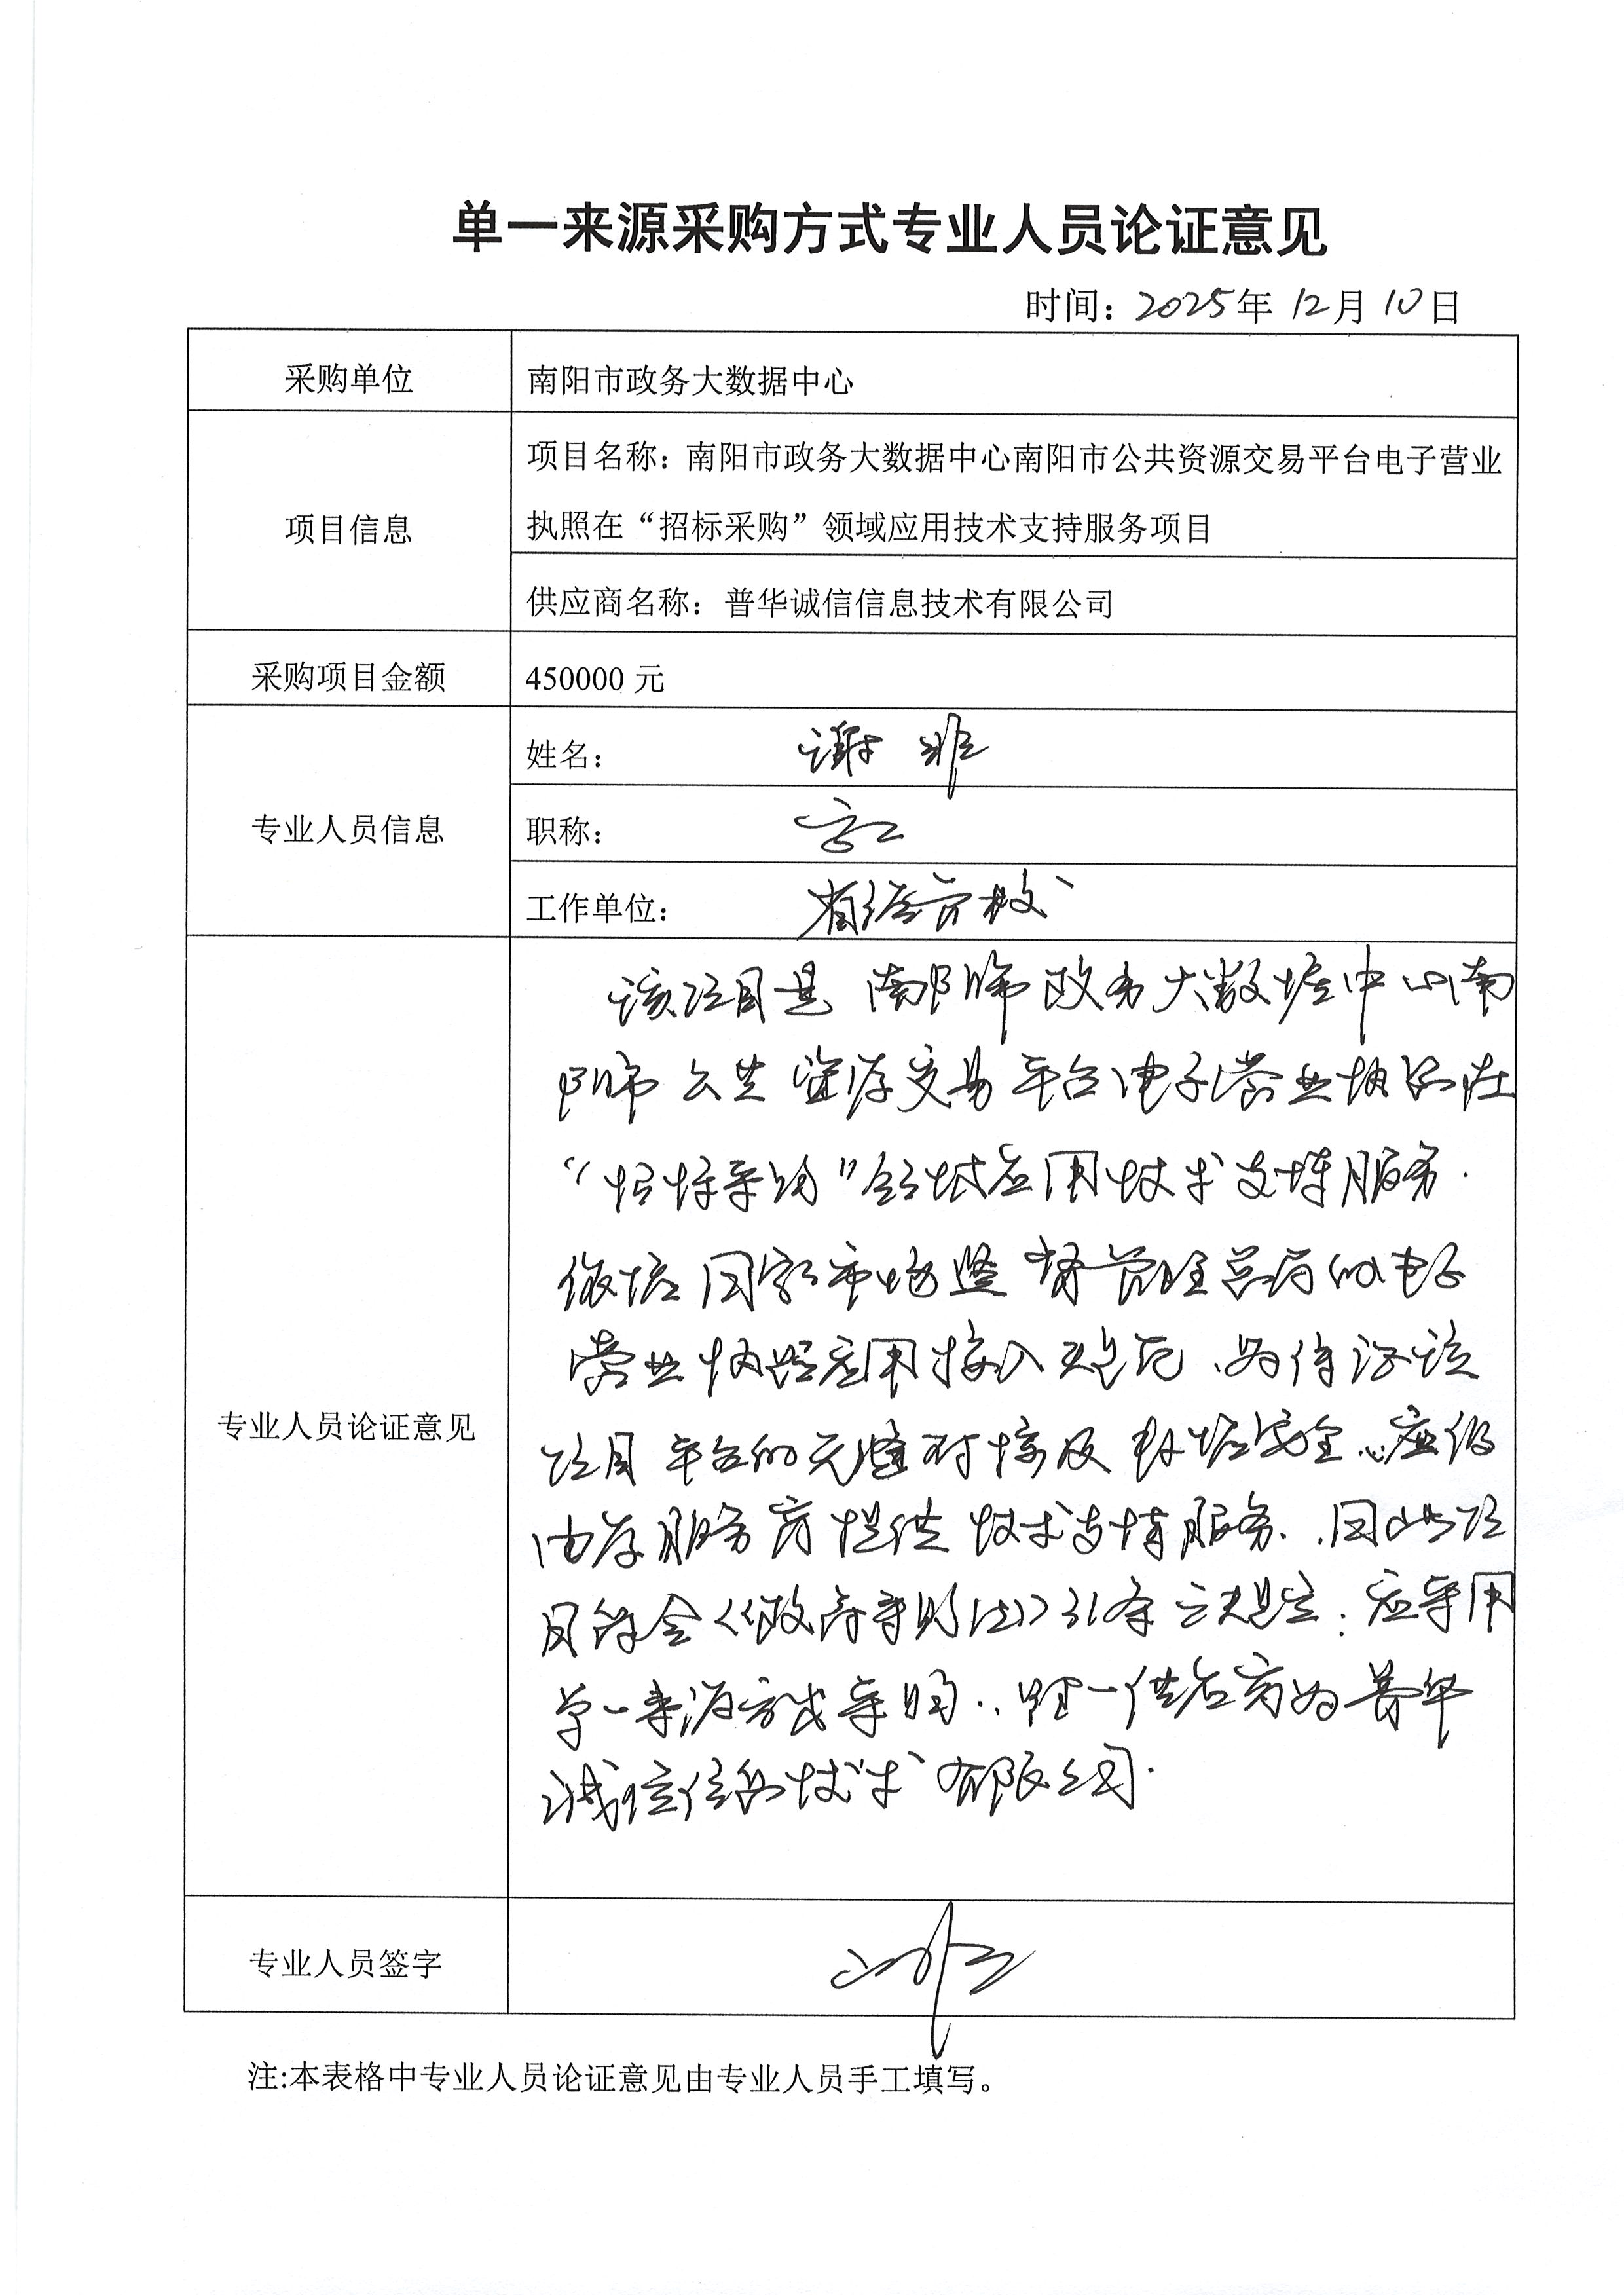 单一来源采购方式专业人员论证意见
时间：2025年12月10日
采购单位
南阳市政务大数据中心
项目信息
项目名称：南阳市政务大数据中心南阳市公共资源交易平台电子营业
执照在“招标采购”领域应用技术支持服务项目
供应商名称：普华诚信信息技术有限公司
采购项目金额
450000 元
专业人员信息
姓名： 谢非
职称： 高工
工作单位：
专业人员论证意见
该项目是南阳市政务大数据中心南
阳市公共资源交易平台电子营业执照在
“招标采购”领域应用技术支撑服务.
依据国家市场监督管理总局的电子
营业执照应用接入规范、为保证该
项目平台的无缝对接及数据安全，应仍
由原服务商提供技术支撑服务.因此项
目符合《政府采购法》31条之规定：应采用
单一来源方式采购.唯一供应商为普华
诚信信息技术有限公司.
专业人员签字
谢非
注:本表格中专业人员论证意见由专业人员手工填写。